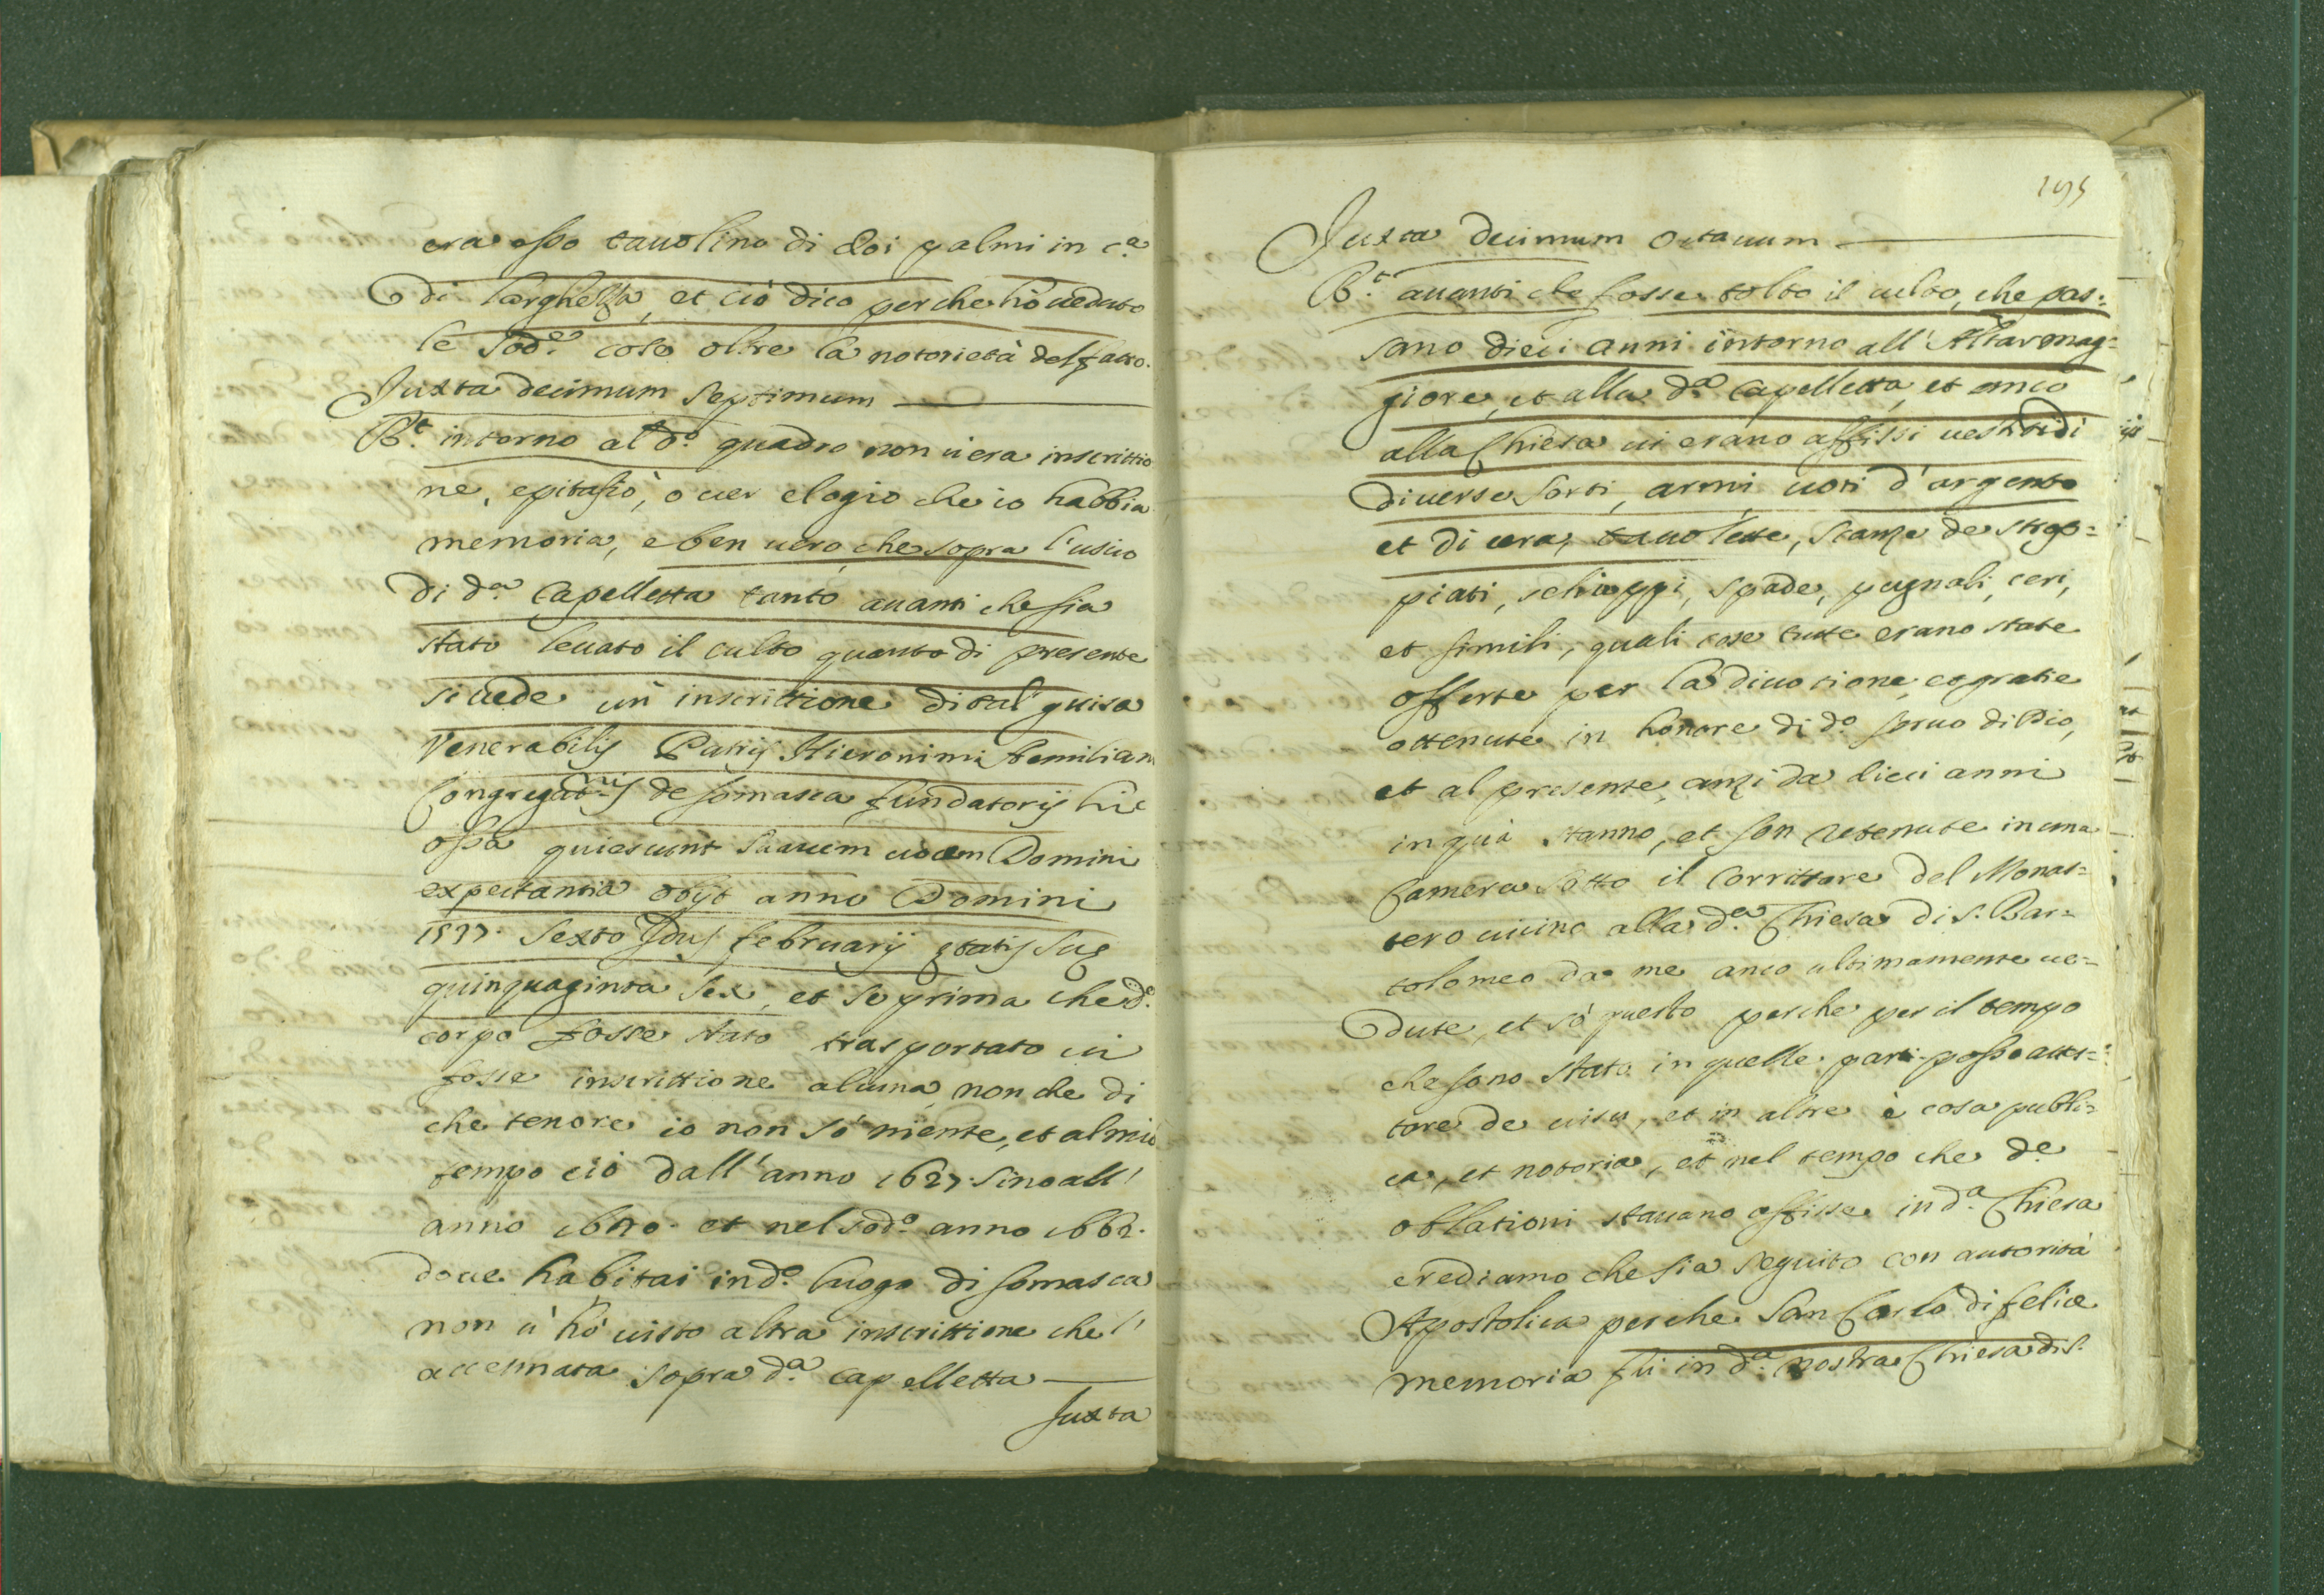 era esso tauolino di doi palmi in c.ª
di larghezza, et ciò dico perche hò ueduto
le sod.e cose oltre la notorietà del fatto.
Juxta decimum septimum
R.t intorno al d.o quadro non ui era inscrittio
ne, epitafio, o uer elogio che io habbia
memoria, e ben uero, che sopra l'uscio
di d.a Capelletta tanto auanti che sia
stato leuato il culto quanto di presente
si uede un inscrittione di tal guisa
Venerabilis Patris Hieronimi Aemiliani
Congregat.nis de Somasca fundatoris hic
ossa quiescunt suauem uocem Domini
expectantia obijt anno Domini
1537. Sexto Idus februarij ętatis suę
quinquaginta sex, et se prima che d.o
corpo fosse stato trasportato ui
fosse inscrittione alcuna, non che di
che tenore io non sò niente, et al mio
tempo ciò dall'anno 1627. sino all'
anno 1640. et nel sod.o anno 1662.
doue habitai in d.o luogo di Somasca
non u'hò uisto altra inscrittione che l'
accennata sopra d.a capelletta
Juxta
195
Juxta decimum octauum
R.t auanti che fosse tolto il culto, che pas=
sano dieci anni intorno all'Altar mag=
giore, et alla d.a Capelletta, et anco
alla Chiesa ui erano affissi uestiti di
diuerse sorti, armi, uoti d'argento
et di cera, tauolette, scanze de strop=
piati, schioppi, spade, pugnali, ceri,
et simili, quali cose tutte erano state
offerte per la diuotione, et gratie
ottenute in honore di d.o seruo di Dio,
et al presente, anzi da dieci anni
in quà stanno, et son retenute in una
Camera sotto il Corrittore del Monas=
tero uicino alla d.a Chiesa di S. Bar=
tolomeo da me anco ultimamente ue=
dute, et sò questo perche per il tempo
che sono stato in quelle parti posso attes=
tare de uisu, et in altre è cosa publi=
ca, et notoria, et nel tempo che d.e
oblationi stauano affisse in d.a Chiesa
crediamo che sia seguito con autorità
Apostolica perche San Carlo di felice
memoria fù in d.a nostra Chiesa di S.